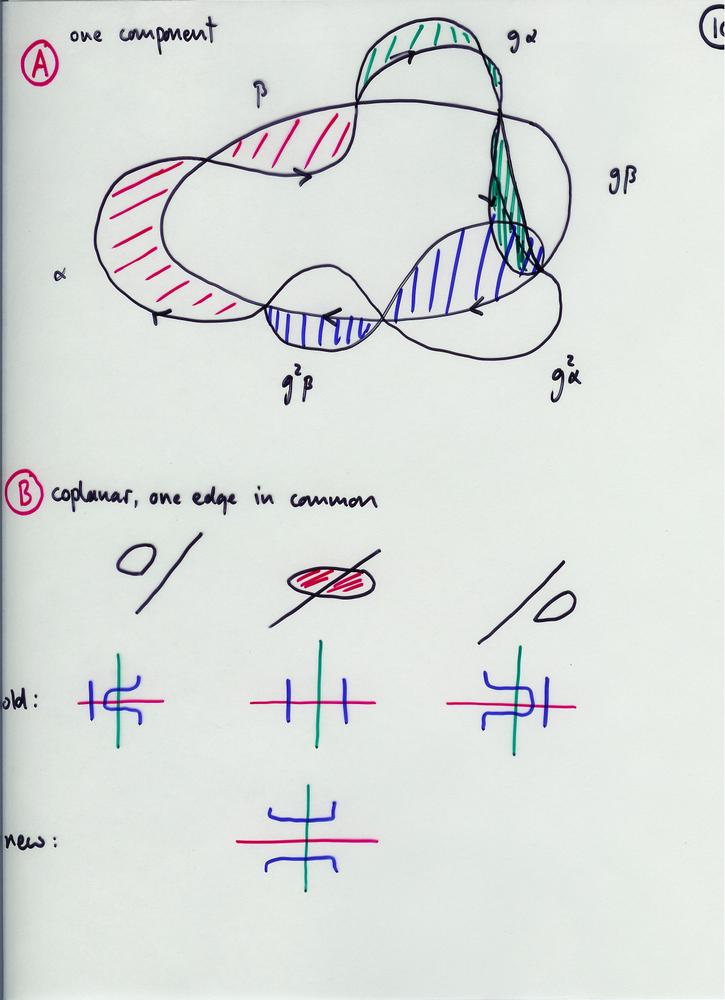 one component
A
β
gα
gβ
α
g²β
g²α
B coplanar, one edge in common
old:
new: